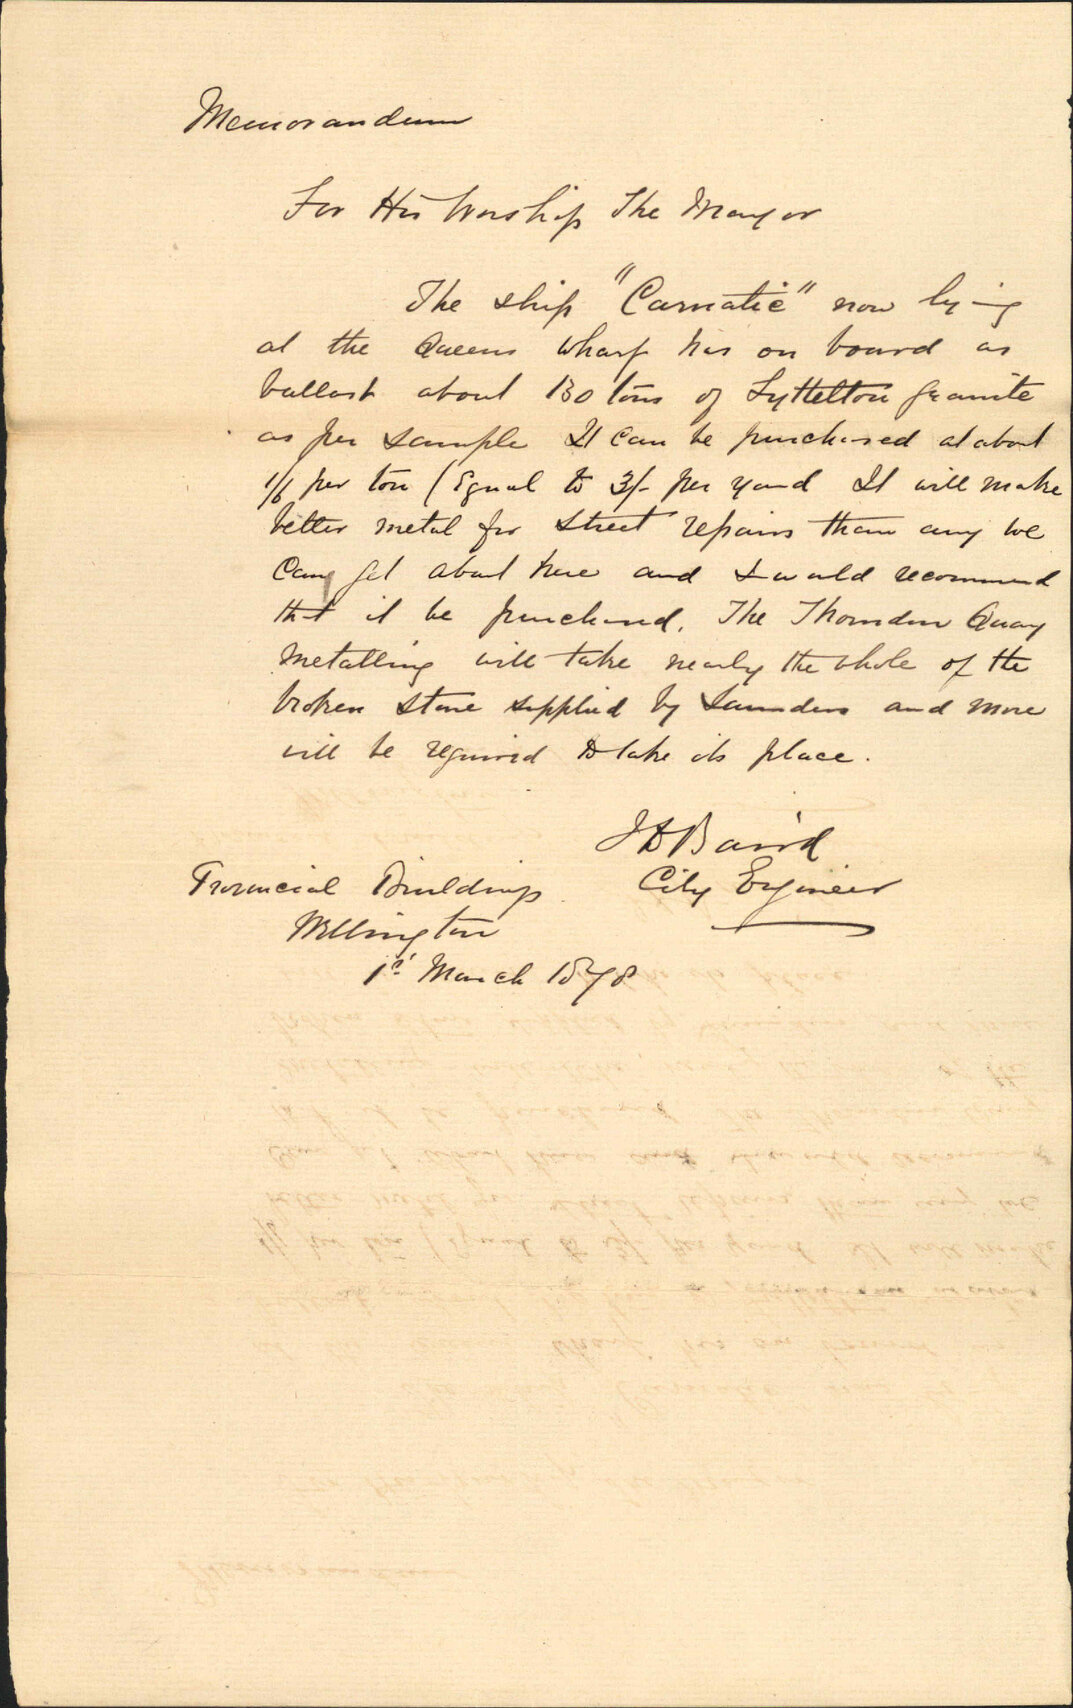 Memorandum
For His Worship The Mayor
The ship "Carnatic" now lying
at the Queens Wharf has on board as
ballast about 130 tons of Lyttelton granite
as per sample It can be purchased at about
1/6 per ton (Equal to 3/- per yard It will make
better metal for Street repairs than any we
can get about here and I would recommend
that it be purchased. The Thorndon Quay
Metalling will take nearly the whole of the
broken stone supplied by Saunders and more
will be required to take its place.
J D Baird
City Engineer
Provincial Buildings
Wellington
1st March 1878